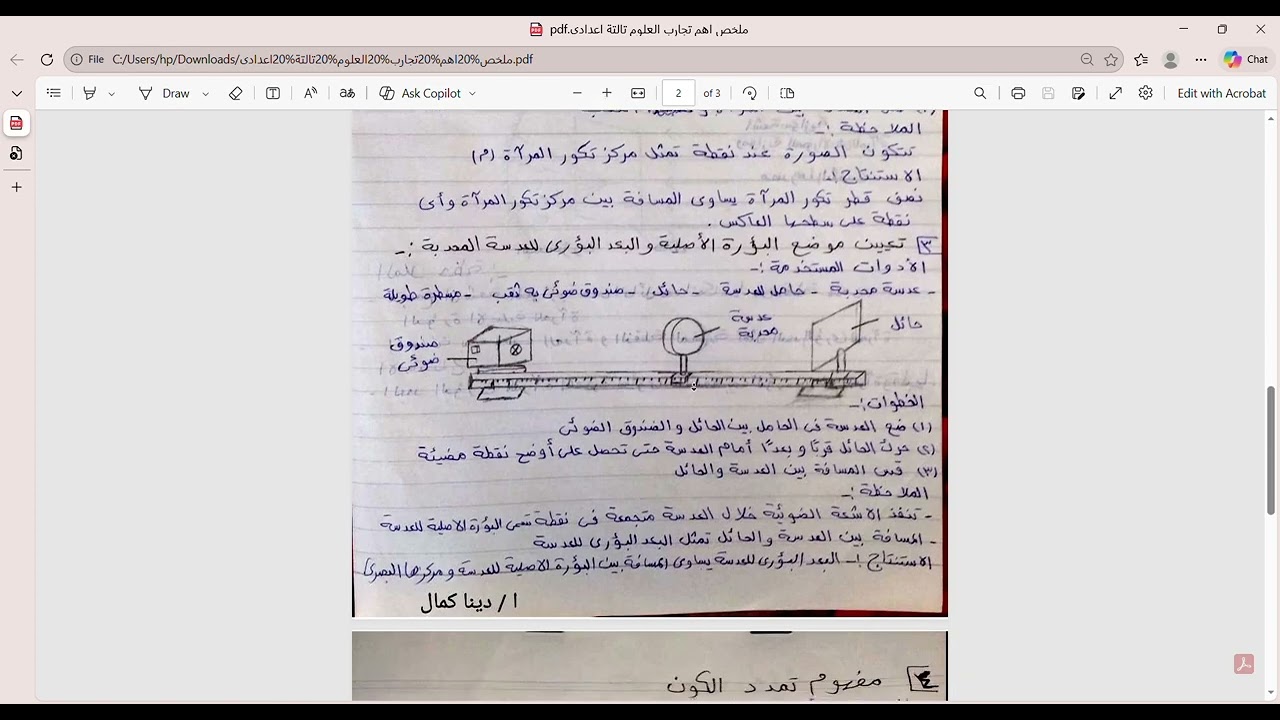 ملخص اهم تجارب العلوم تالتة اعدادى.pdf
File C:/Users/hp/Downloads/ملخص%20اهم%20تجارب%20العلوم%20تالتة%20اعدادى.pdf
Chat
Draw
Ask Copilot
2 of 3
Edit with Acrobat
الملاحظة :-
تتكون الصورة عند نقطة تمثل مركز تكور المرآة (م)
الاستنتاج :-
نصف قطر تكور المرآة يساوى المسافة بين مركز تكور المرآة وأى
نقطة على سطحها العاكس .
٣ تعيين موضع البؤرة الأصلية والبعد البؤرى للعدسة المحدبة :-
الأدوات المستخدمة :-
- عدسة محدبة - حامل للعدسة - حائل - صندوق ضوئى به ثقب - مسطرة طويلة
حائل
عدسة
محدبة
صندوق
ضوئى
الخطوات :-
(١) ضع العدسة فى الحامل بين الحائل و الصندوق الضوئى
(٢) حرك الحائل قربًا و بعدًا أمام العدسة حتى تحصل على أوضح نقطة مضيئة
(٣) قس المسافة بين العدسة والحائل
الملاحظة :-
- تنفذ الاشعة الضوئية خلال العدسة متجمعة فى نقطة تسمى البؤرة الاصلية للعدسة
- المسافة بين العدسة والحائل تمثل البعد البؤرى للعدسة
الاستنتاج :- البعد البؤرى للعدسة يساوى المسافة بين البؤرة الاصلية للعدسة و مركزها البصرى
ا / دينا كمال
٤ مفهوم تمدد الكون